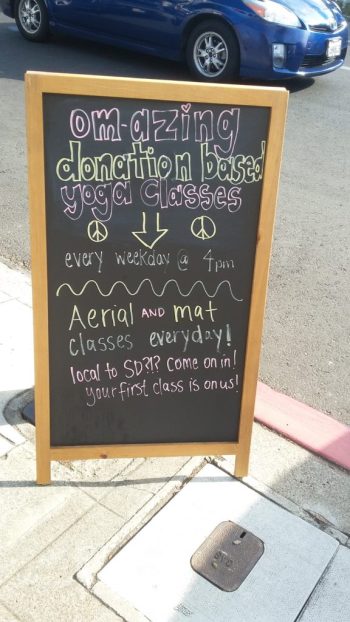 om-azing
donation based
yoga Classes
every weekday @ 4pm
Aerial AND mat
classes everyday!
local to SD?!? Come on in!
your first class is on us!